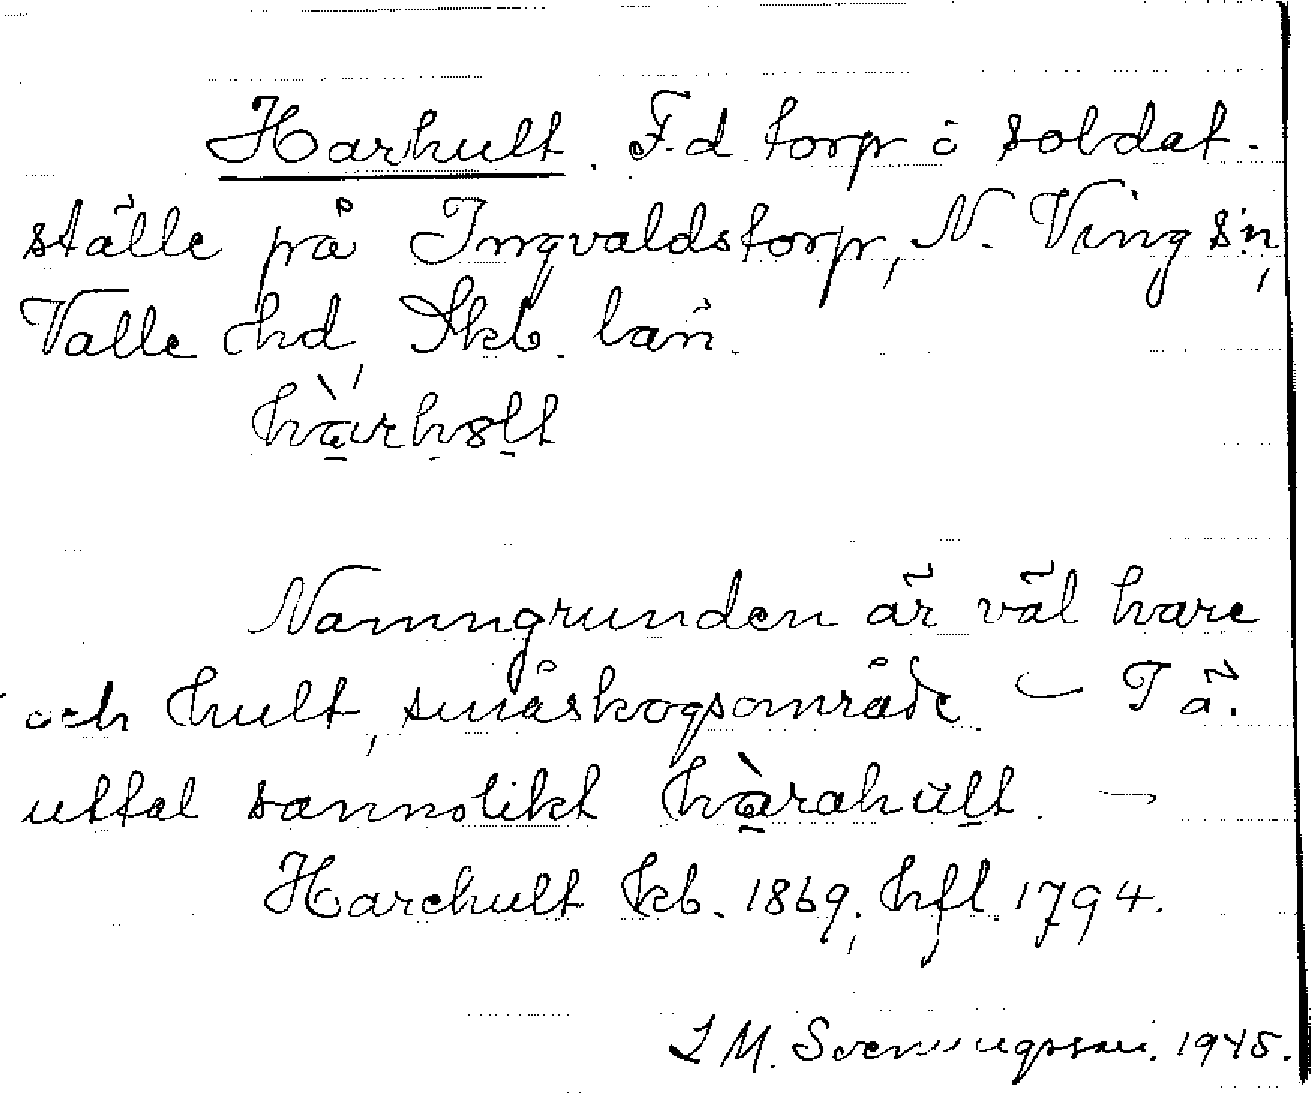 Harhult. F.d. torp o soldat-
ställe på Ingvaldstorp, N. Ving sn,
Valle hd, Skb. län.
hàrhɵlt
Namngrunden är väl hare
och hult, småskogsområde. – T ä.
uttal sannolikt hàrahult. –
Harehult kb. 1869; hfl. 1794.
L M. Svenungsson. 1945.